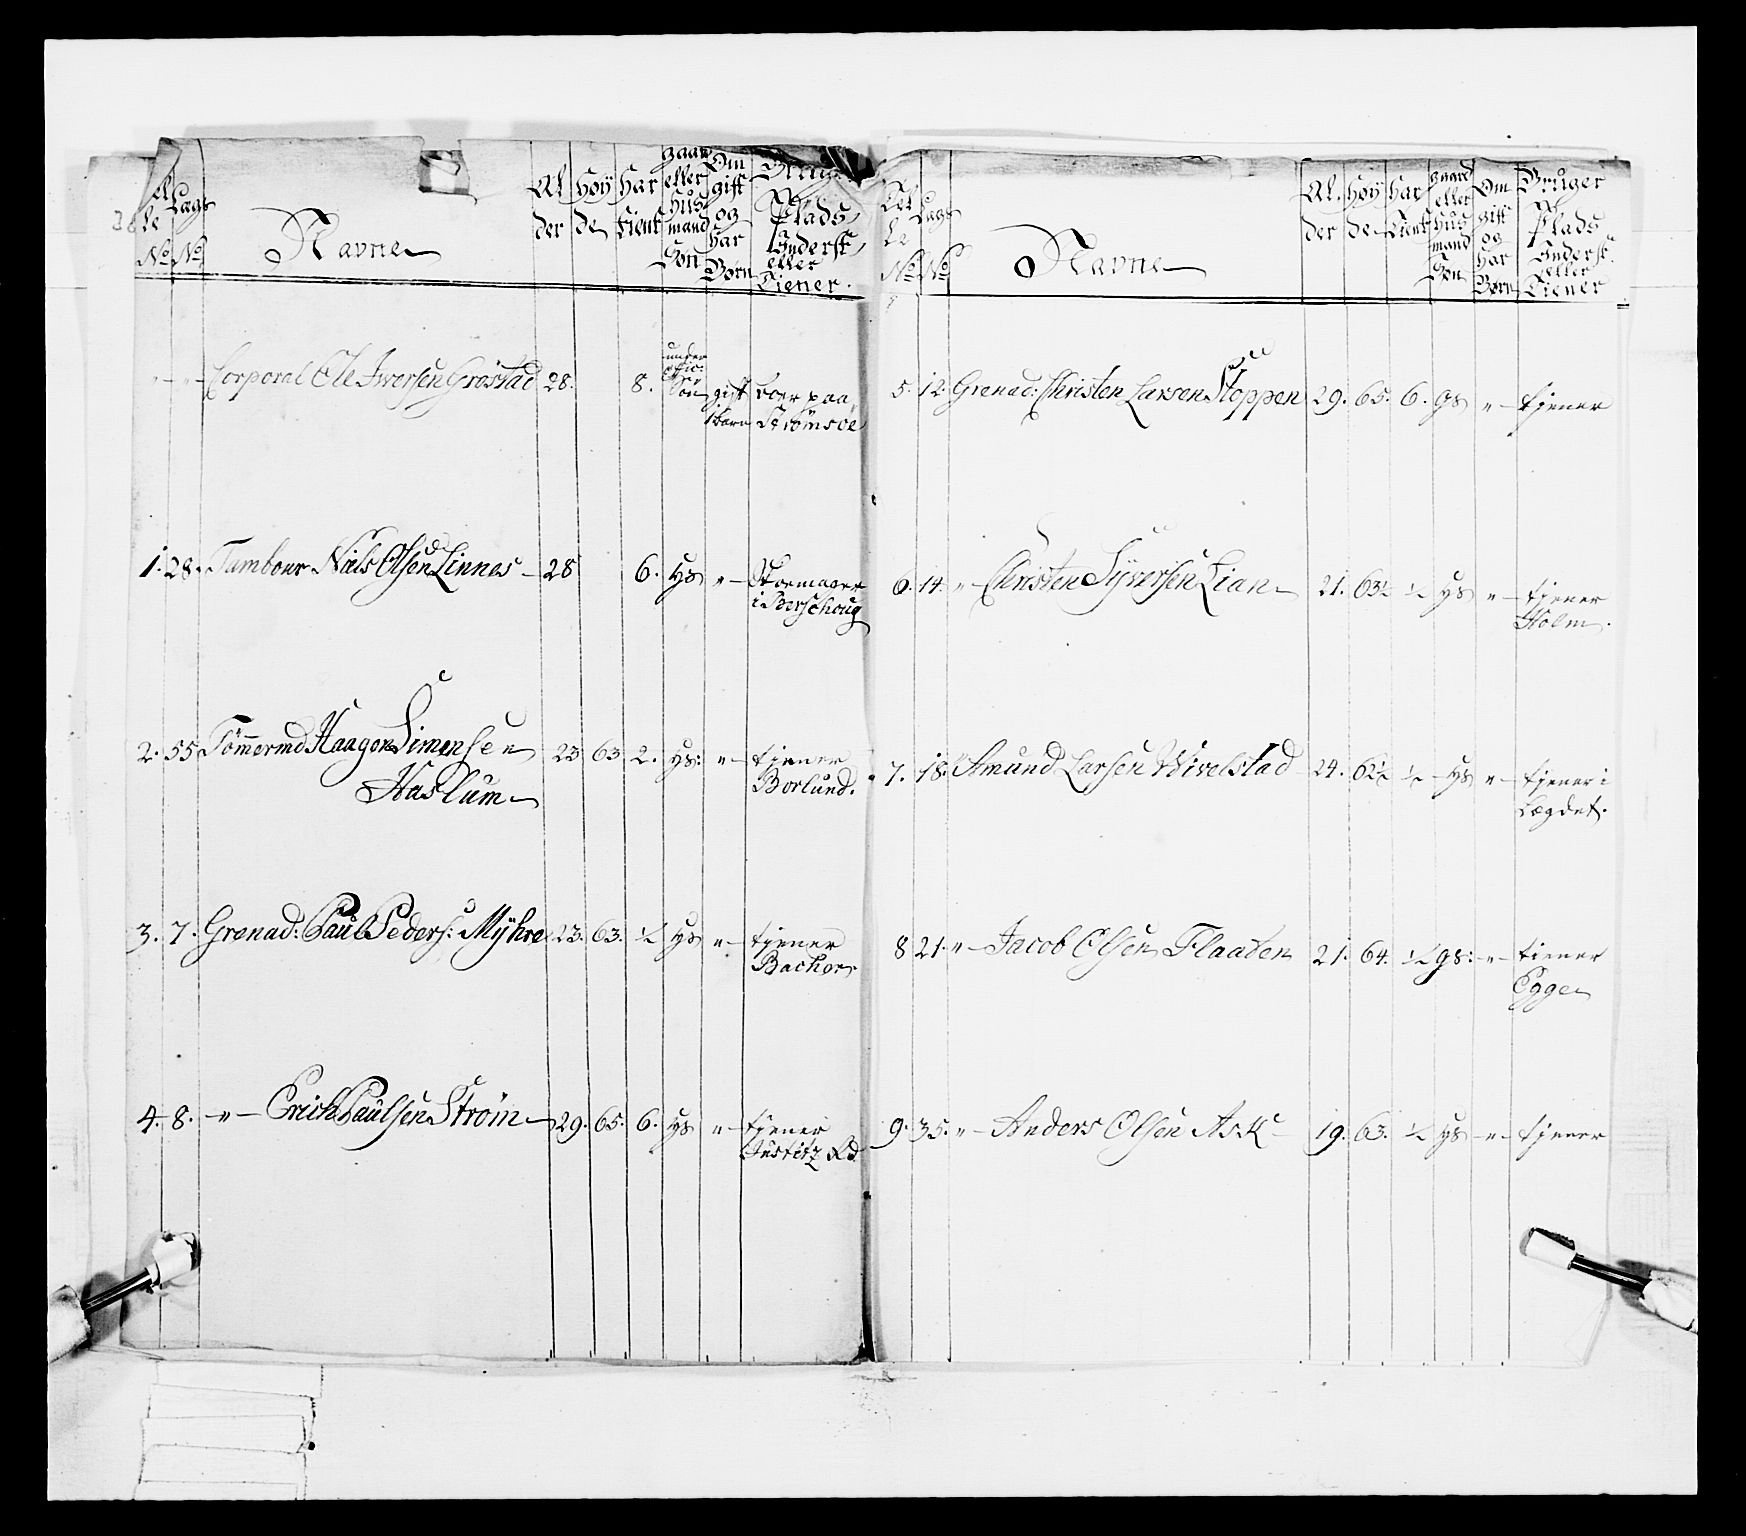 Lægs
le
No No Navne
Al der
Høy de
Har tient
gaard eller Huus mand Søn
Om gift og har Børn
Bruger Plads Inderst eller Tiener.
" " Corporal Ole Iversen Grøstad 28. 8. under offic: Søn gift 1 barn boer paa Strømsøe
1. 28. Tambour Niels Olsen Linnes 28 6. HS " Skoemager
i Berschoug
2. 55 Tømermd Haagen Simensen 23 63 2. HS: " tjener
Haslum Borlund.
3. 7. Grenad: Paul Peders: Mÿhre 23. 63. ½ HS " tjener
Bacher
4. 8. " Erich Paulsen Strøm 29. 65. 6. HS " tjener
Justitz Rd
Tel le No
Lægs No
Navne
Al. der
Høy de
Har Tient
gaard eller Hus mand Søn
Om gift og har Børn
Bruger Plads Inderst. eller Tiener
5. 12. Grenad: Christen Larsen Stoppen 29. 65. 6. GS " tjener
6. 14. " Christen Sÿversen Lian 21. 63½ ½ HS " tjener
Holm.
7. 18. " Amund Larsen Wivelstad 24. 62½ ½ HS " tjener i
Lægdet.
8 21. " Jacob Olsen Flaaten 21. 64. ½ GS: " tiener
Egge
9. 35. " Anders Olsen Ask 19. 63. ½ HS " tjener